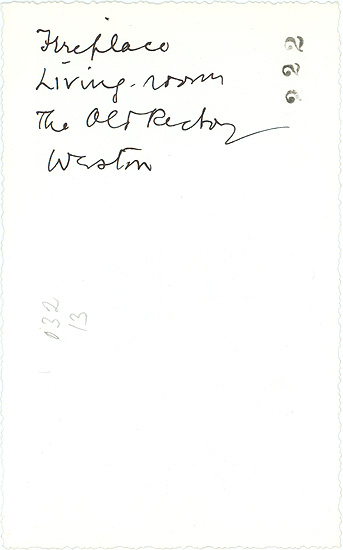 Fireplace
Living-room
The Old Rectory
Weston
022
032
13